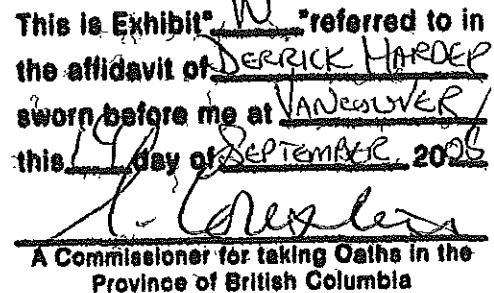 This is Exhibit " W " referred to in
the affidavit of DERRICK HARDEP
sworn before me at VANCOUVER
this 19 day of SEPTEMBER 20
A Commissioner for taking Oaths in the
Province of British Columbia